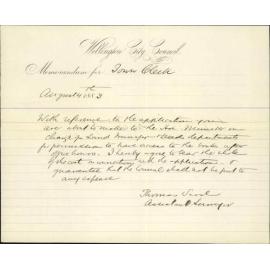 Wellington City Council
Memorandum for Town Clerk
August 4th 1883
With reference to the application you
are about to make to the Hon Minister in
charge for Land Transfer & Deeds departments
for permission to have access to the books after
office hours. I hereby agree to bear the whole
of the cost in connection with the application &
guarantee that the Council shall not be put to
any expense
Thomas
Assistant Surveyor